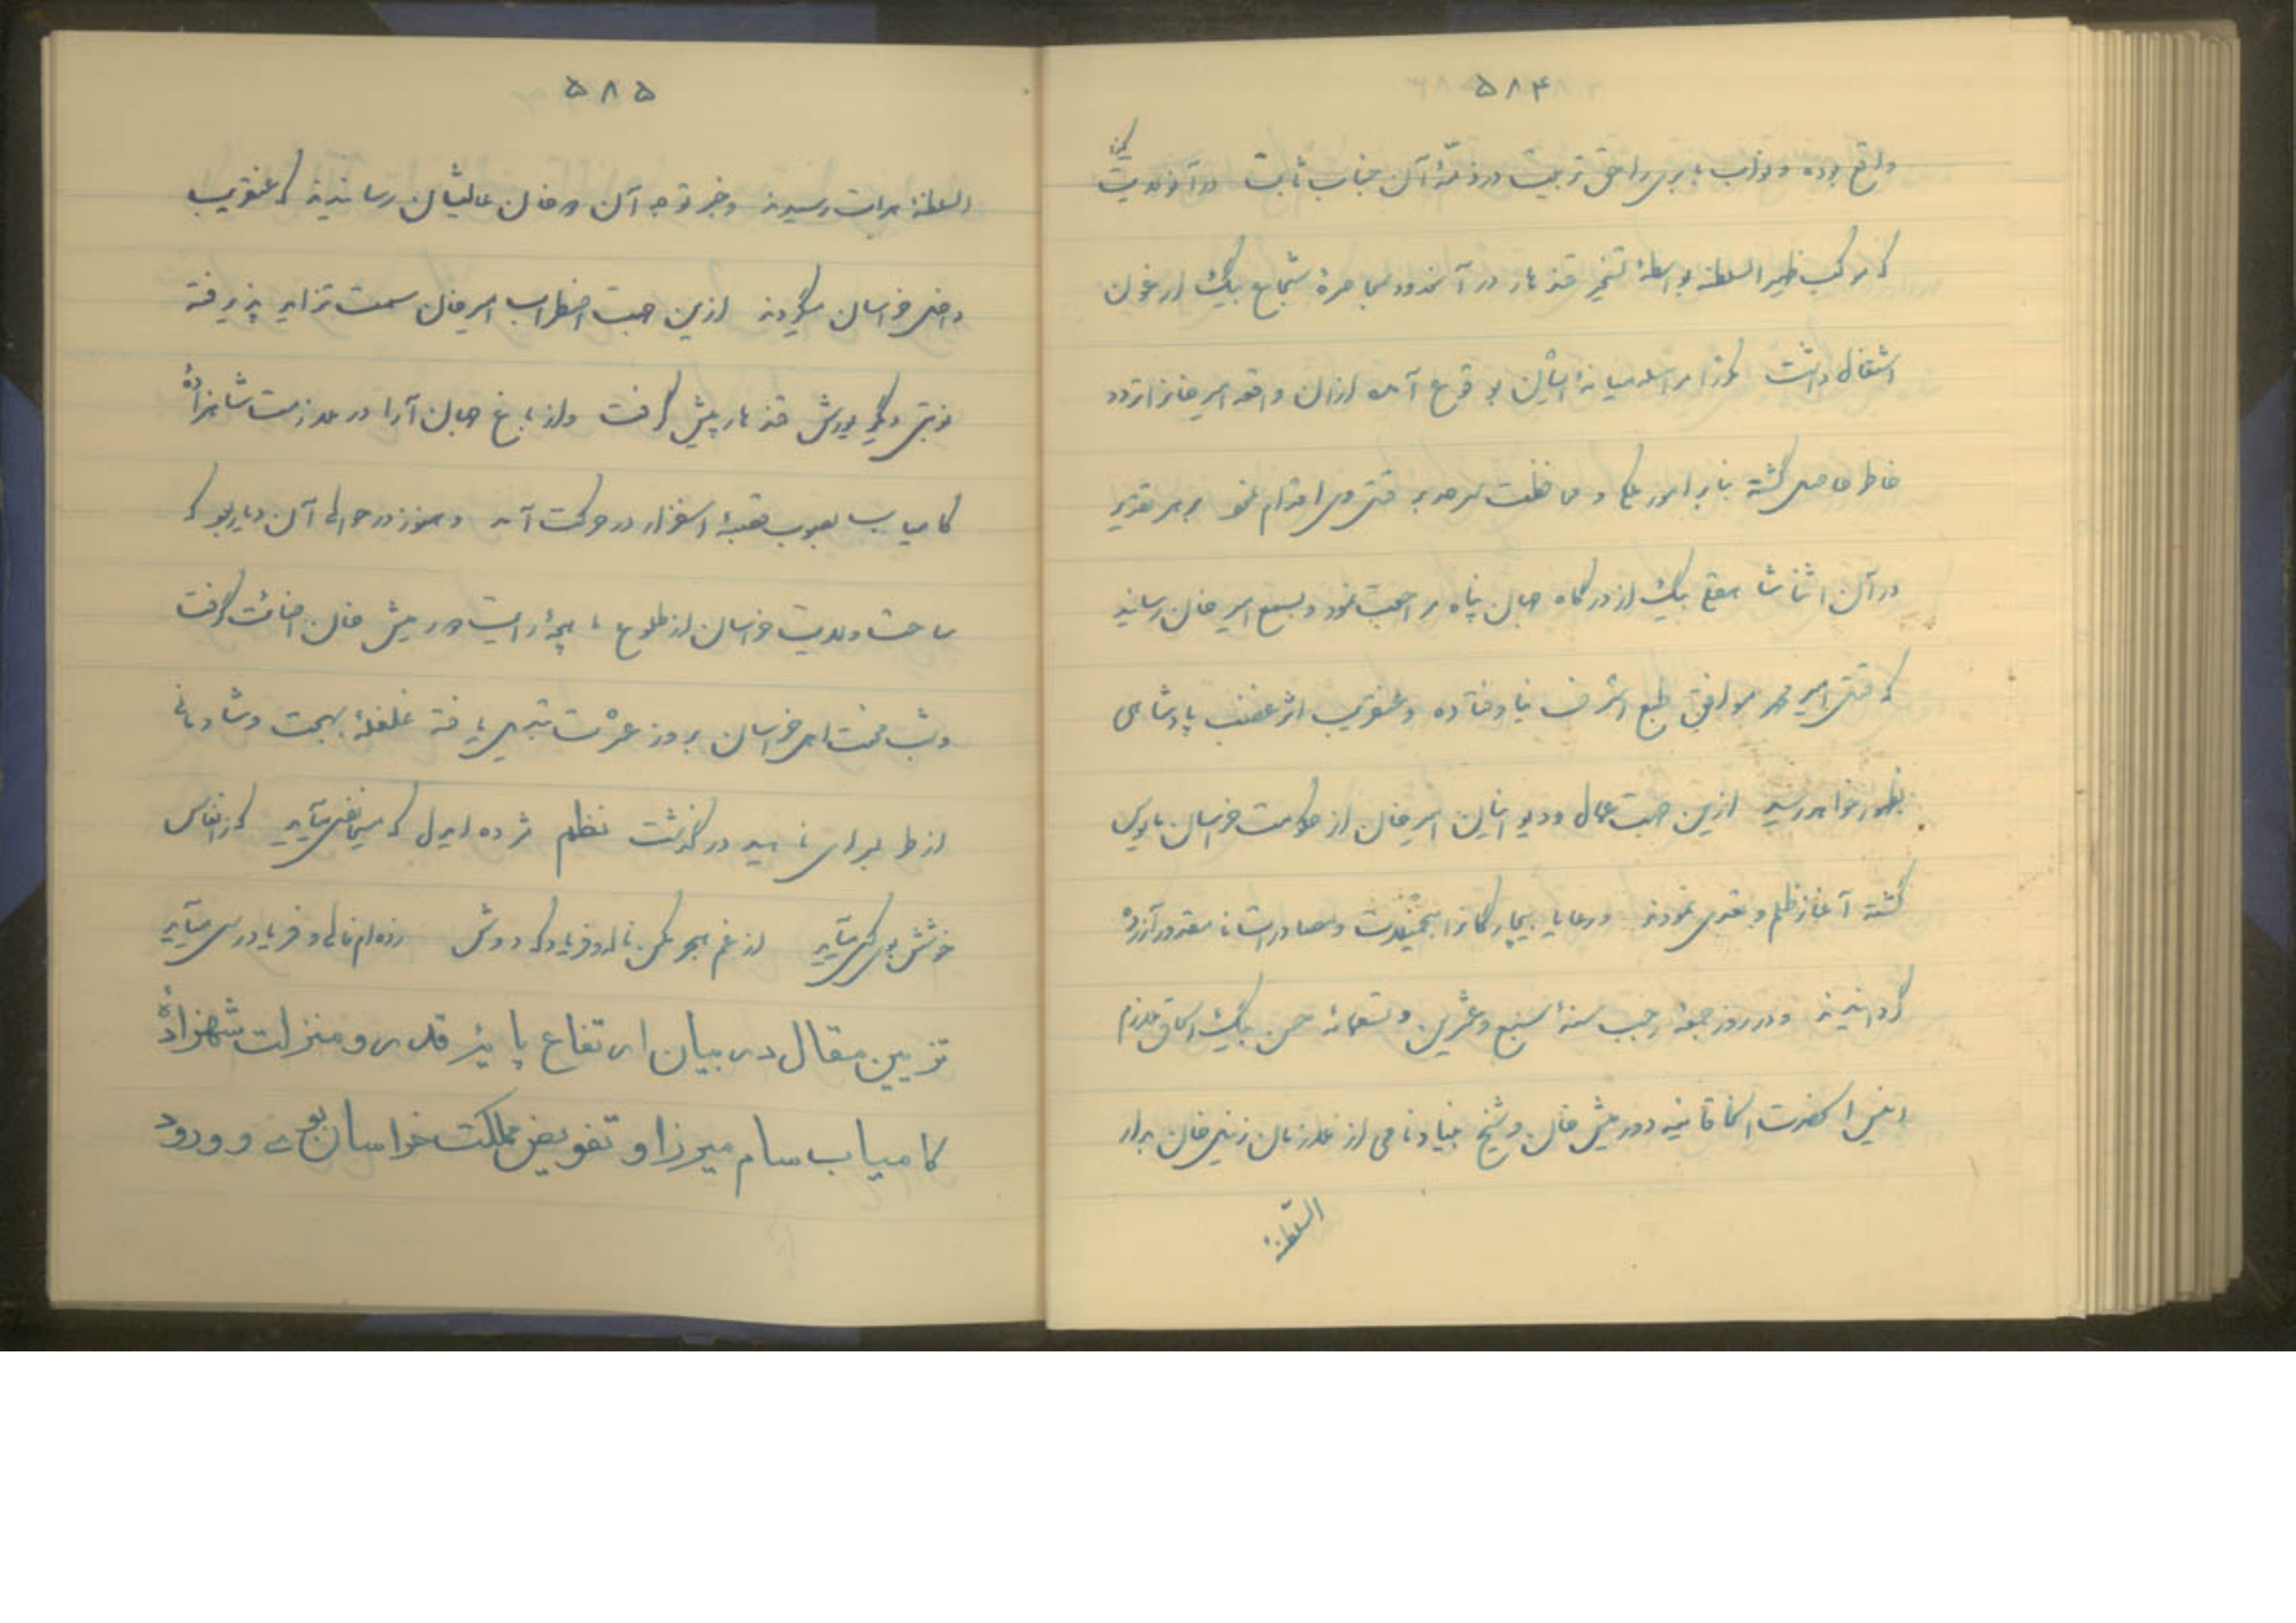 ۵۸۴
واقع بوده و نواب بابری را حق تربیت در ذمهٔ آن جناب ثابت در آنولایت
که موکب ظهیر السلطنه بواسطهٔ تسخیر قندهار در آنحدود بمحاصرهٔ شجاع بیگ ارغون
اشتغال داشت میانهٔ ایشان بوقوع آمده ازان واقعه امیر خانرا تردد
خاطر حاصل گشته بنابر امور ملکی و محافظت سرحد بر قتل وی اقدام نمود بر هر تقدیر
در آن اثنا شاهقلی بیگ از درگاه جهان پناه مراجعت نمود و بسمع امیر خان رسانید
که قتل امیر محمد موافق طبع اشرف نیاوفتاده و عنقریب اثر غضب پادشاهی
بظهور خواهد رسید ازین جهت عمال و دیوانیان امیر خان از حکومت خراسان مأیوس
گشته آغاز ظلم و تعدی نمودند و رعایای بیچارگانرا و مصادرات نا مقدور آزرده
گردانیدند و در روز جمعه رجب سنهٔ سبع و عشرین و تسعمائه حسن بیگ ملازم
انیس الحضرت الخاقانیه دورمیش خان و شیخ بنیاد نامی از ملازمان زینل خان بدار
السلطنهٔ
۵۸۵
السلطنهٔ هرات رسیدند و خبر توجه آن دو خان عالیشان رسانیدند که عنقریب
داخل خراسان میگردند ازین جهت اضطراب امیر خان سمت تزاید پذیرفته
نوبتی دیگر یورش قندهار پیش گرفت و از باغ جهان آرا در ملازمت شاهزادهٔ
کامیاب بصوب قصبهٔ اسفزار در حرکت آمد و هنوز در حوالی آن دیار بود که
ساحت ولایت خراسان از طلوع ماهچهٔ رایت دورمیش خان اضائت گرفت
و شب محنت اهل خراسان بروز عشرت تبدیل یافته غلغلهٔ بهجت و شادمانی
از طارم سرای ناهید در گذشت نظم مژده ایدل که مسیحا نفسی میآید که ز انفاس
خوشش بوی کسی میآید از غم هجر مکن ناله و فریاد که دوش زده‌ام فالی و فریادرسی میآید
تزیین مقال در بیان ارتفاع پایهٔ قدر و منزلت شهزادهٔ
کامیاب سام میرزا و تفویض مملکت خراسان بوی و ورود